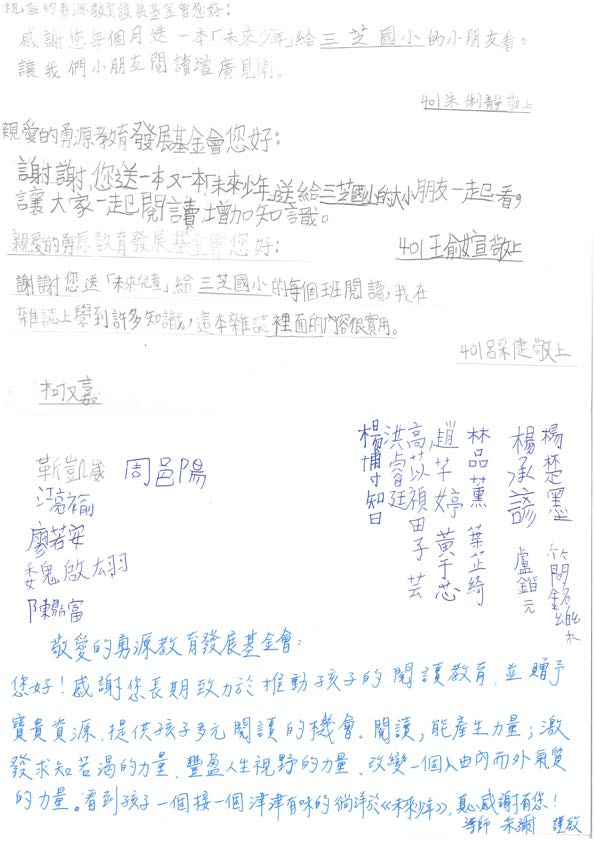 親愛的勇源教育發展基金會您好：
感謝您每個月送一本「未來少年」給三芝國小的小朋友看。
讓我們小朋友閱讀增廣見聞。
401朱俐靜敬上
親愛的勇源教育發展基金會您好：
謝謝您送一本又一本「未來少年」送給三芝國小的大小朋友一起看，
讓大家一起閱讀增加知識。
401王俞媗敬上
親愛的勇源教育發展基金會您好：
謝謝您送「未來兒童」給三芝國小的每個班閱讀，我在
雜誌上學到許多知識，這本雜誌裡面的內容很實用。
401呂采倢敬上
柯又嘉
靳凱崴 周邑陽
江亮褕
廖若安
魏啟翃
陳勛富
楊楚墨 簡銘樂
楊承諺 盧鍇元
林品薰 葉芷綺
趙芊婷 黃于芯
高苡禎 田子芸
洪睿廷
楊博智
敬愛的勇源教育發展基金會：
您好！感謝您長期致力於推動孩子的閱讀教育，並贈予
寶貴資源，提供孩子多元閱讀的機會。閱讀，能產生力量；激
發求知若渴的力量、豐盈人生視野的力量、改變一個人由內而外氣質
的力量。看到孩子一個接一個津津有味的徜徉於《未來少年》，真心感謝有您！
導師 朱 謹啟